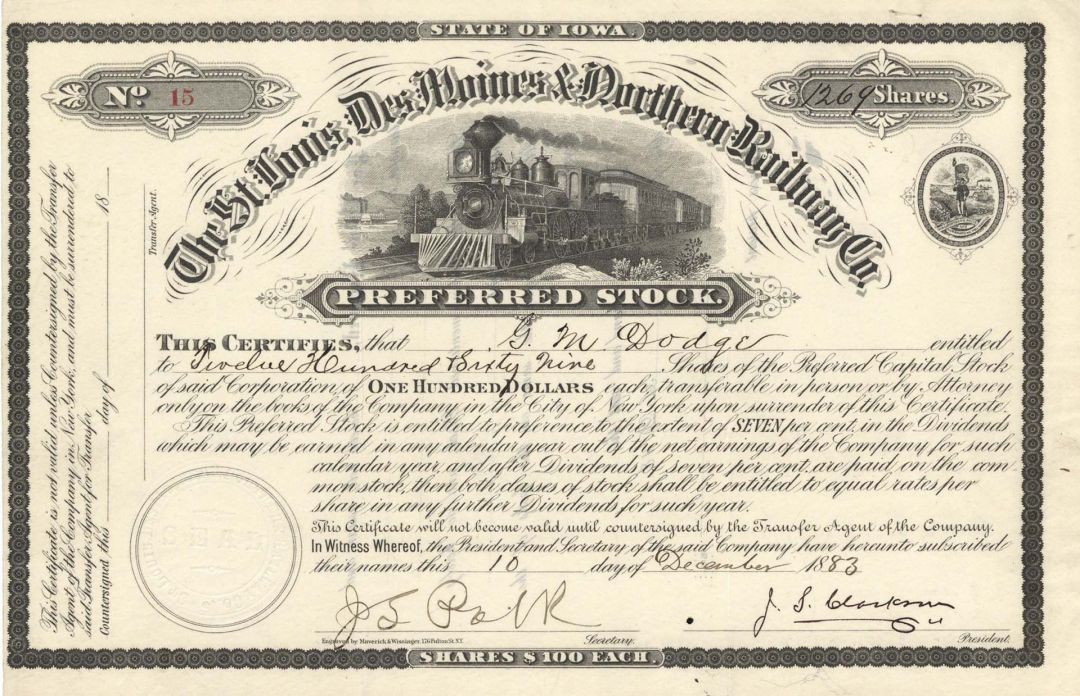 STATE OF IOWA.
No 15
1269 Shares.
The St. Louis, Des Moines & Northern Railway Co.
PREFERRED STOCK.
THIS CERTIFIES, that G. M Dodge entitled
to Twelve Hundred Sixty Nine Shares of the Preferred Capital Stock
of said Corporation of ONE HUNDRED DOLLARS each, transferable in person or by Attorney
only on the books of the Company in the City of New York upon surrender of this Certificate.
This Preferred Stock is entitled to preference to the extent of SEVEN per cent. in the Dividends
which may be earned in any calendar year out of the net earnings of the Company for such
calendar year, and after Dividends of seven per cent. are paid on the com
mon stock, then both classes of stock shall be entitled to equal rates per
share in any further Dividends for such year.
This Certificate will not become valid until countersigned by the Transfer Agent of the Company.
In Witness Whereof, the President and Secretary of the said Company have hereunto subscribed
their names this 10 day of December 1883
J S Polk
J. S. Clarkson
Engraved by Maverick & Wissinger, 176 Fulton St. N.Y.
Secretary.
President.
SHARES $100 EACH.
This Certificate is not valid unless Countersigned by the Transfer
Agent of the Company in New York, and must be surrendered to
said Transfer Agent for Transfer
Countersigned this day of 18
Transfer Agent.